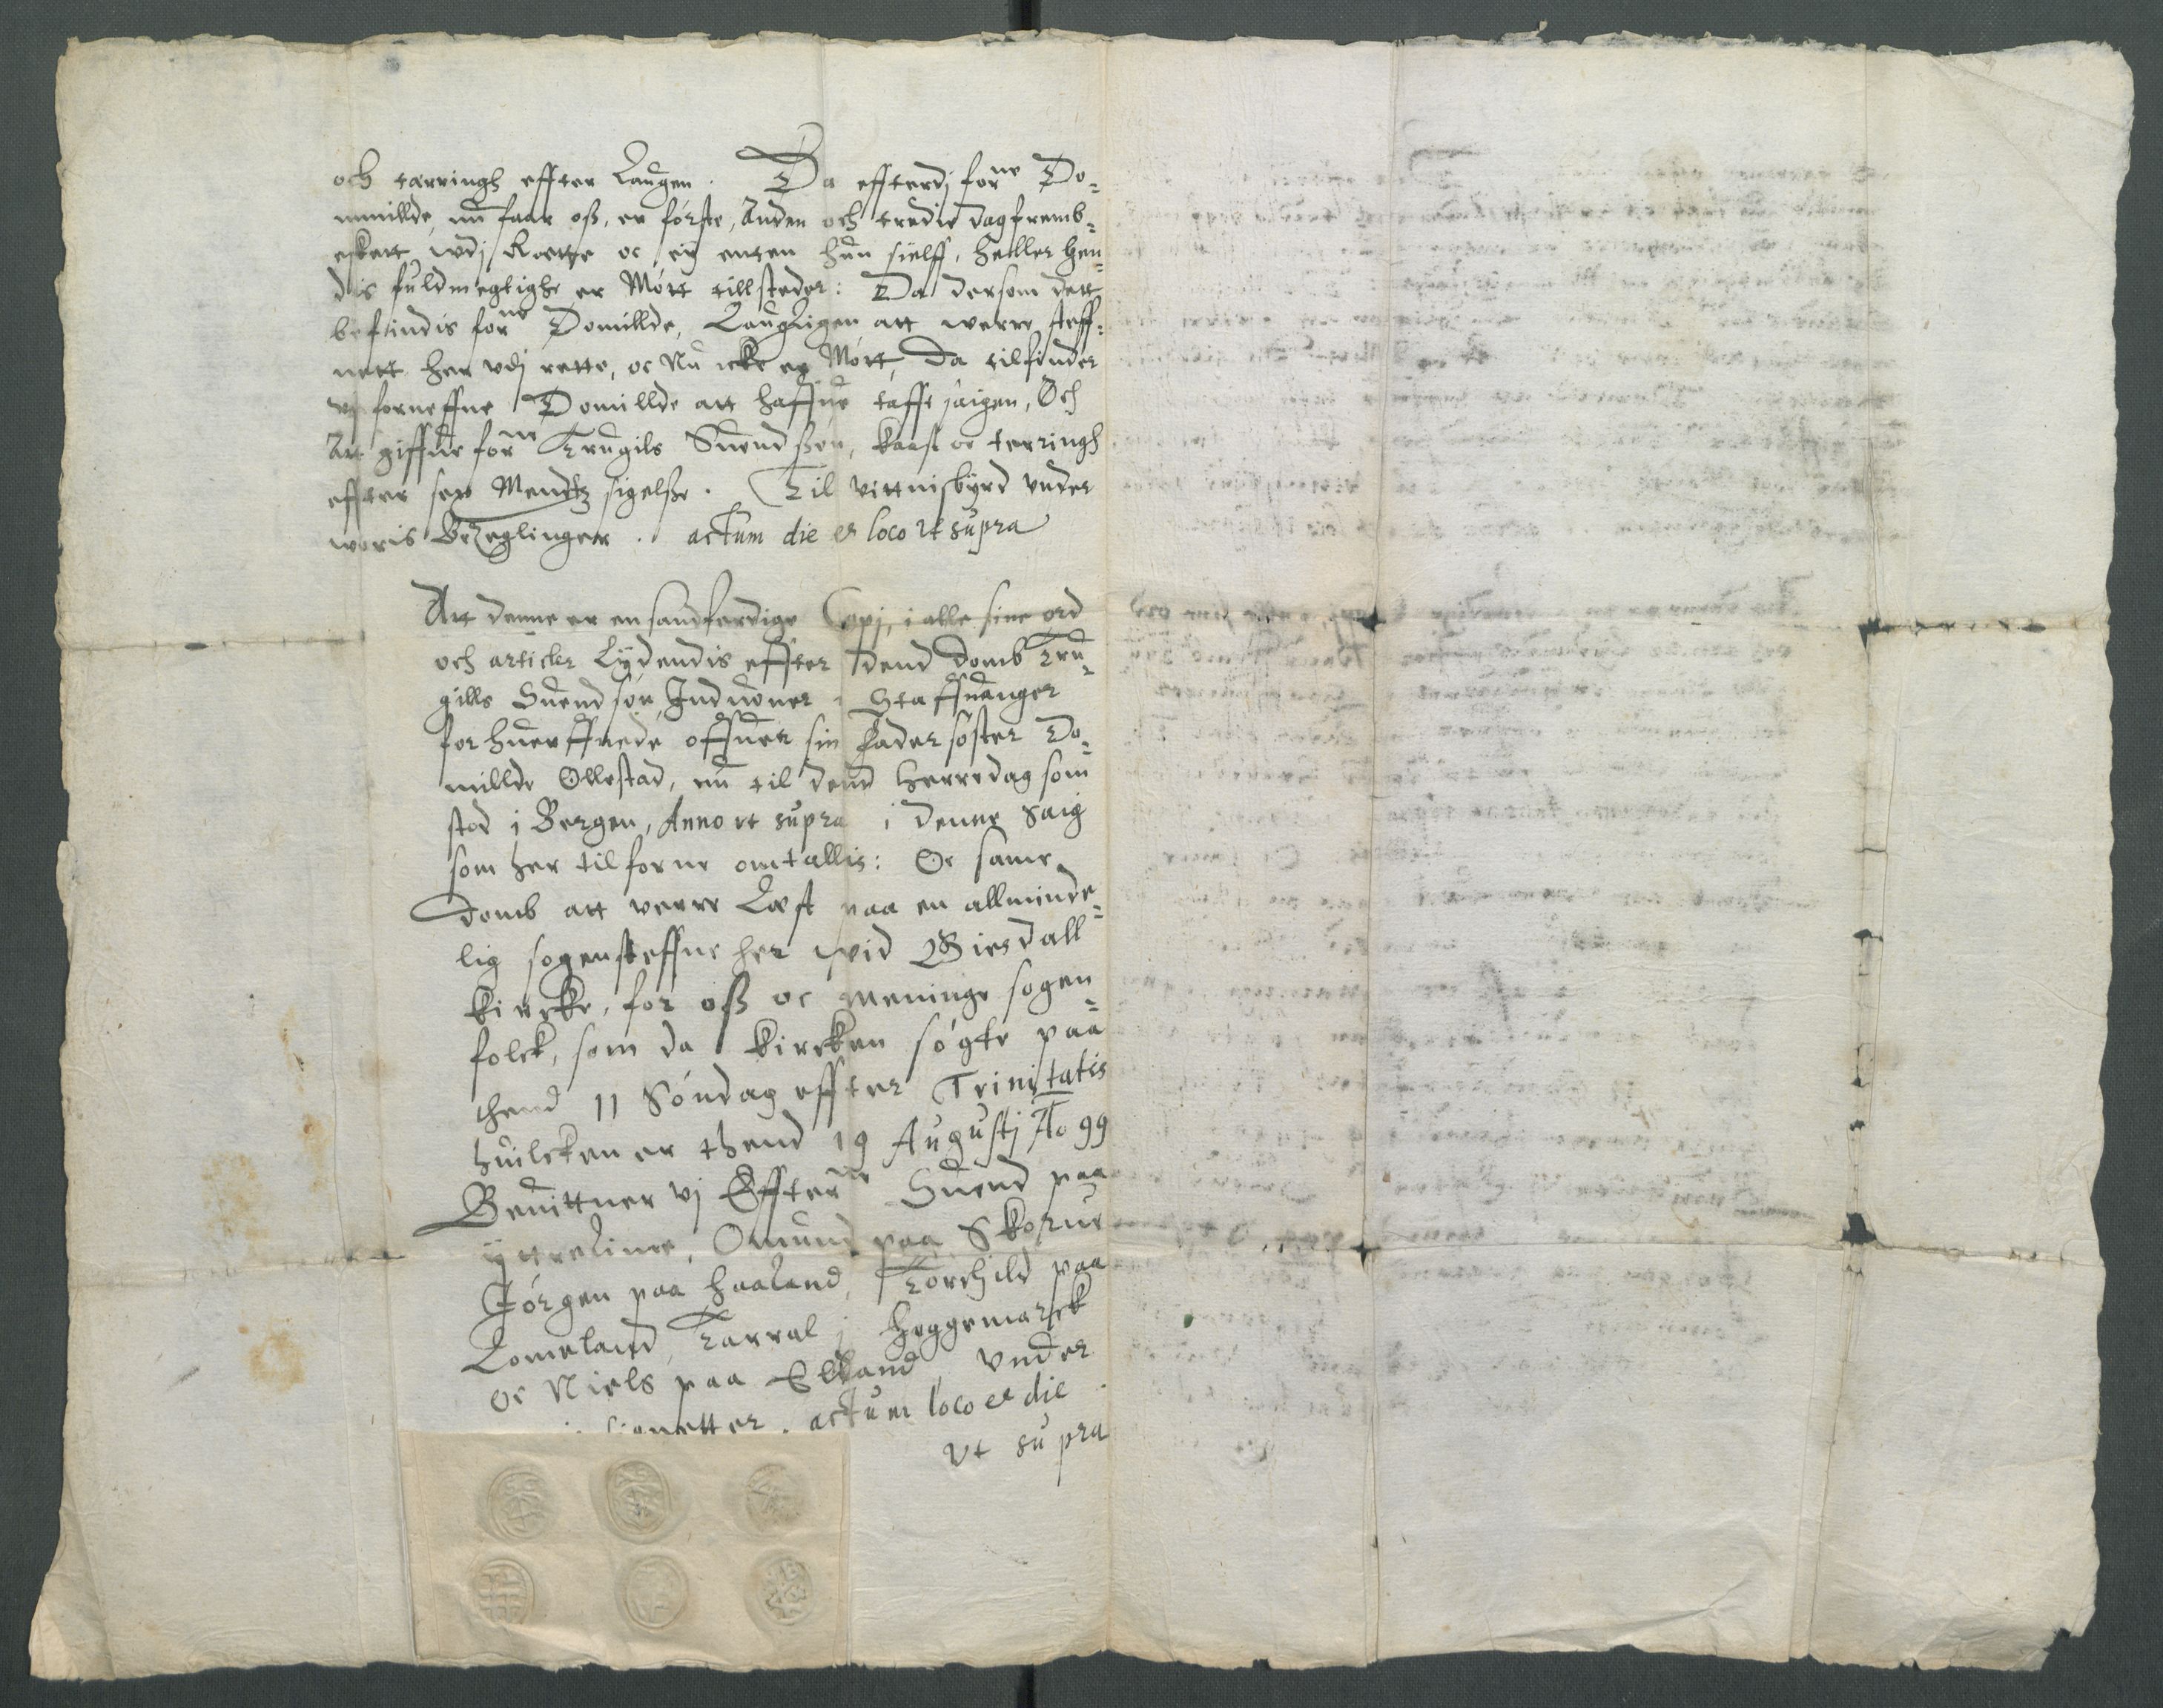 och tærringh effter Laugen. Da effterdj forne Do-
mmillde, nu faar oß, er første, Anden och tredie dag fremb-
esket wdj Rætte oc eÿ enten hun sielff, heller hen-
dis fuldmegtighe er Mött tillsteder: Da dersom dett
befindis forne Domillde, Laugligen att werre steff-
nett her vdj rette, oc Nu icke er Mött, Da tilfinder
vj forneffne Domillde att haffue tafft saigen, Och
At giffue forne Trugils Suendßen, kaast oc terringh
effter sex Mendtz sigelße. Til vittnisbyrd vnder
woris Bezeglinger. actum die et loco vt supra
Att denne er en sandferdige Copj, i alle sine ord
och articler Lÿdendis effter dend domb Tru-
gills Suendsøn, Induoner i Staffuanger
forhuerffuede offuer sin Fadersøster Do-
millde Ollestad, nu til dend herredag som
stod i Bergen, Anno vt supra i denne saig
som her tilforne omtallis: Oc same
domb att verre Læst paa en allminde-
lig sogensteffne her wid Giesdall
kircke, for oß oc meninge sogen-
folck, som da kircken søgte paa
thend 11 Söndag effter Trinitatis
huilcken er thend 19 Augustj Ao 99
Beuittner vj Efftern Suend paa
ÿttreLime, Omund paa Skorue
Jörgen paa haaland, Torchild paa
Lomeland, Tarral i heggemarck
oc Niels paa Elland, vnder
signetter. actum loco et die
vt supra